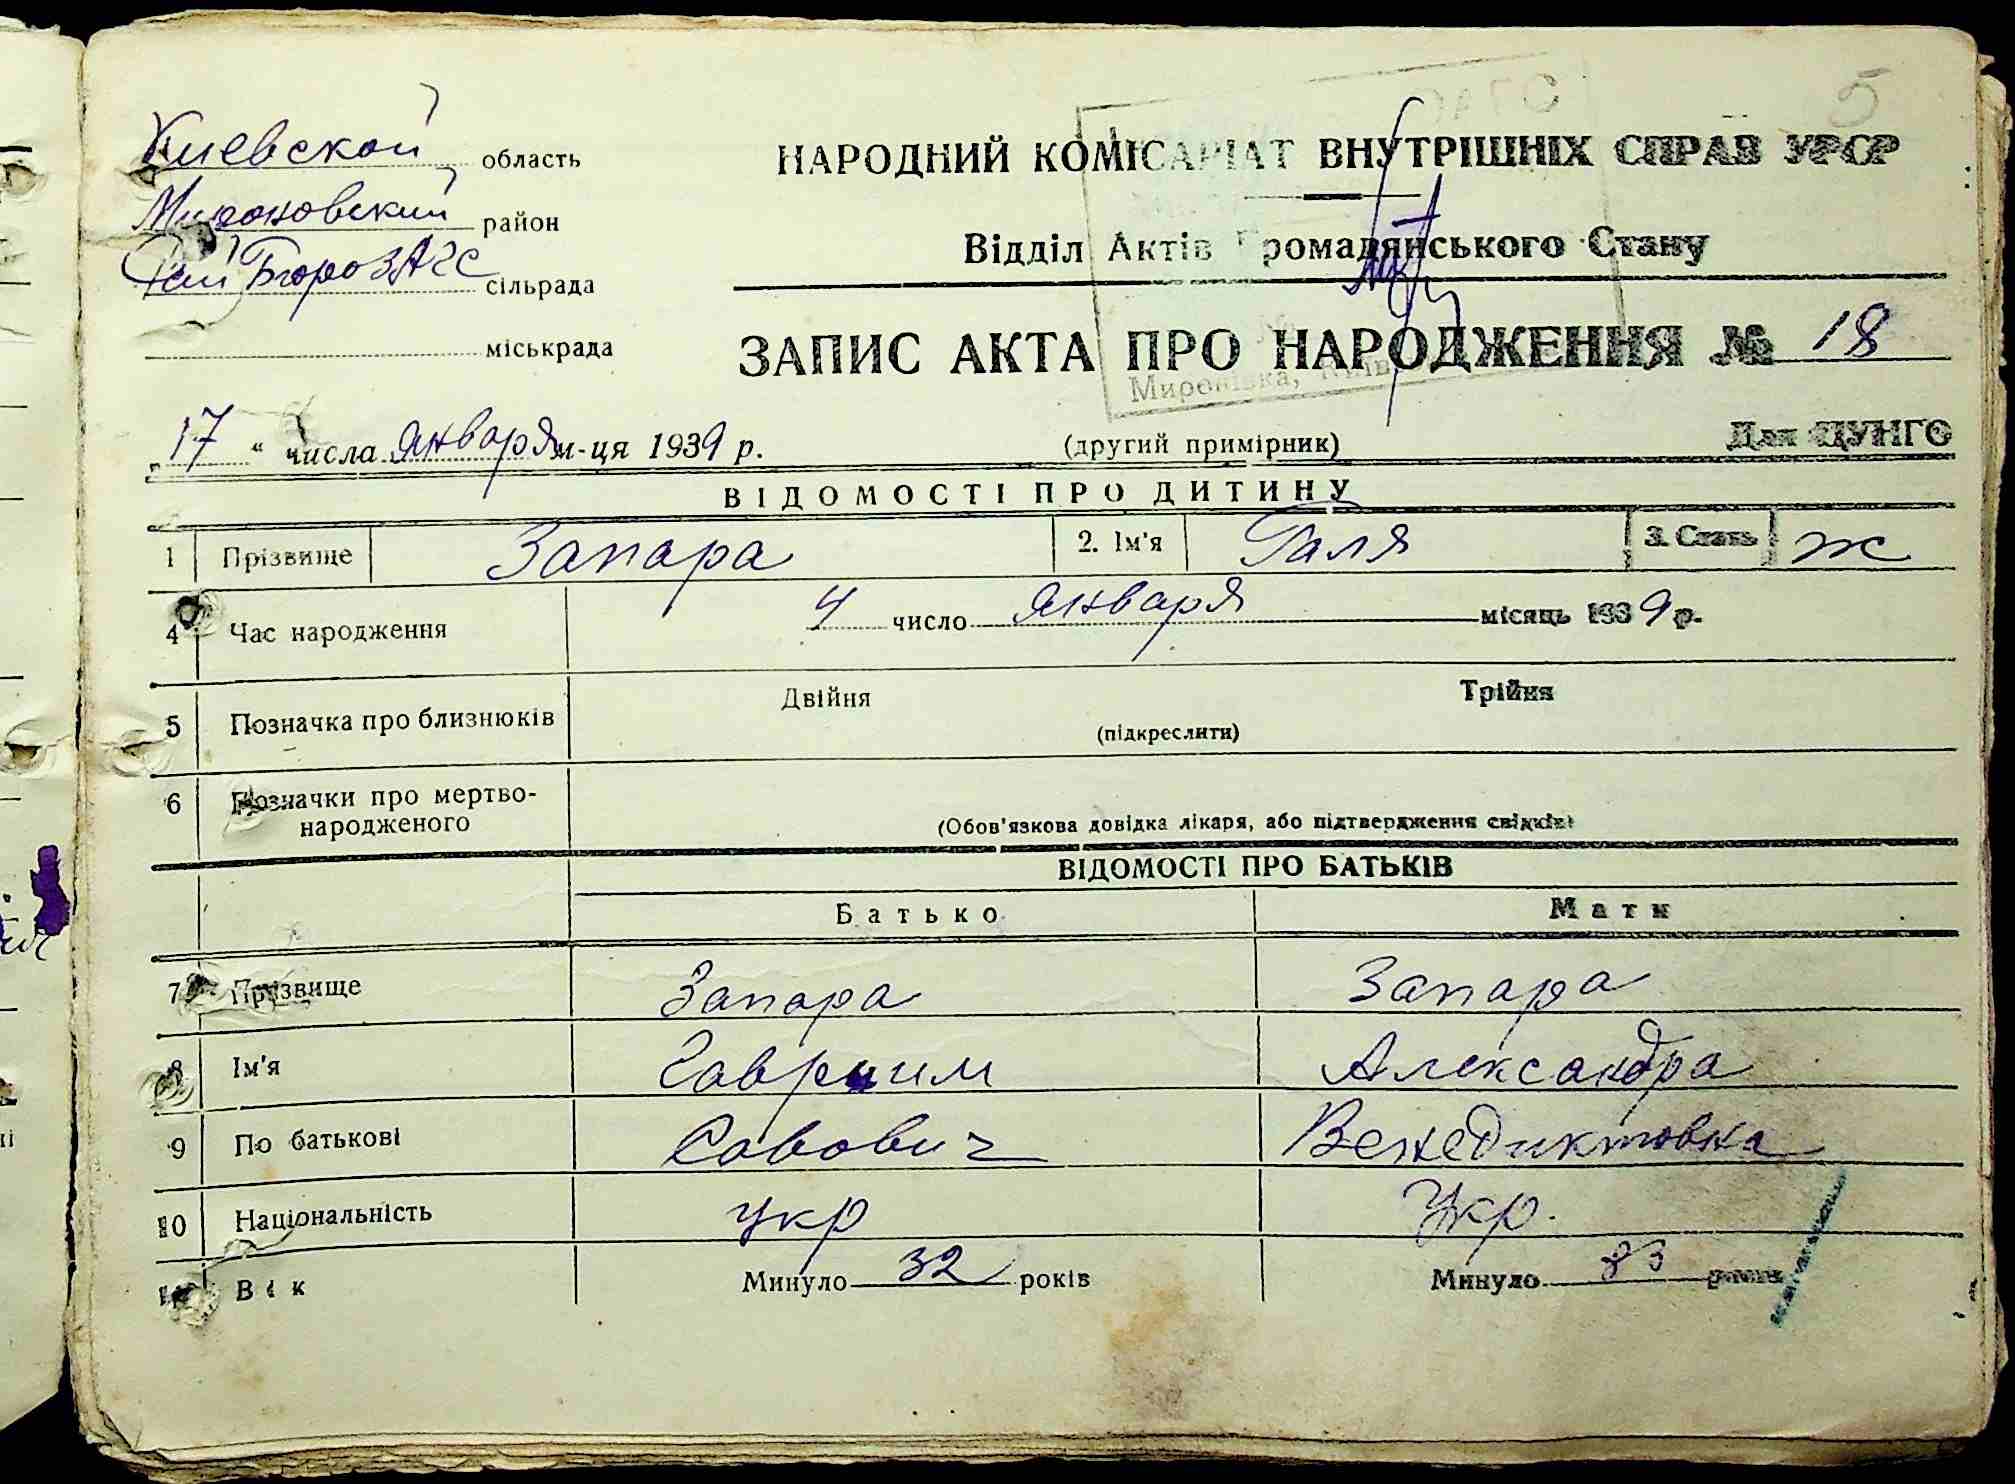 5
Киевской область
Мироновский район
Рай Бюро ЗАГС сільрада
міськрада
НАРОДНИЙ КОМІСАРІАТ ВНУТРІШНІХ СПРАВ УРСР
Відділ Актів Громадянського Стану
ЗАПИС АКТА ПРО НАРОДЖЕННЯ № 18
Миронівка, Київ
„17“ числа января м-ця 1939 р.
(другий примірник)
Для ЦУНГО
ВІДОМОСТІ ПРО ДИТИНУ
1 Прізвище Запара 2. Ім'я Галя 3. Стать ж
4 Час народження 4 число января місяць 1939 р.
5 Позначка про близнюків Двійня Трійня
(підкреслити)
6 Позначки про мертво-
народженого
(Обов'язкова довідка лікаря, або підтвердження свідків)
ВІДОМОСТІ ПРО БАТЬКІВ
Батько Мати
7 Прізвище Запара Запара
8 Ім'я Гавриил Александра
9 По батькові Савович Венедиктовна
10 Національність укр Укр.
11 Вік Минуло 32 років Минуло 33 років